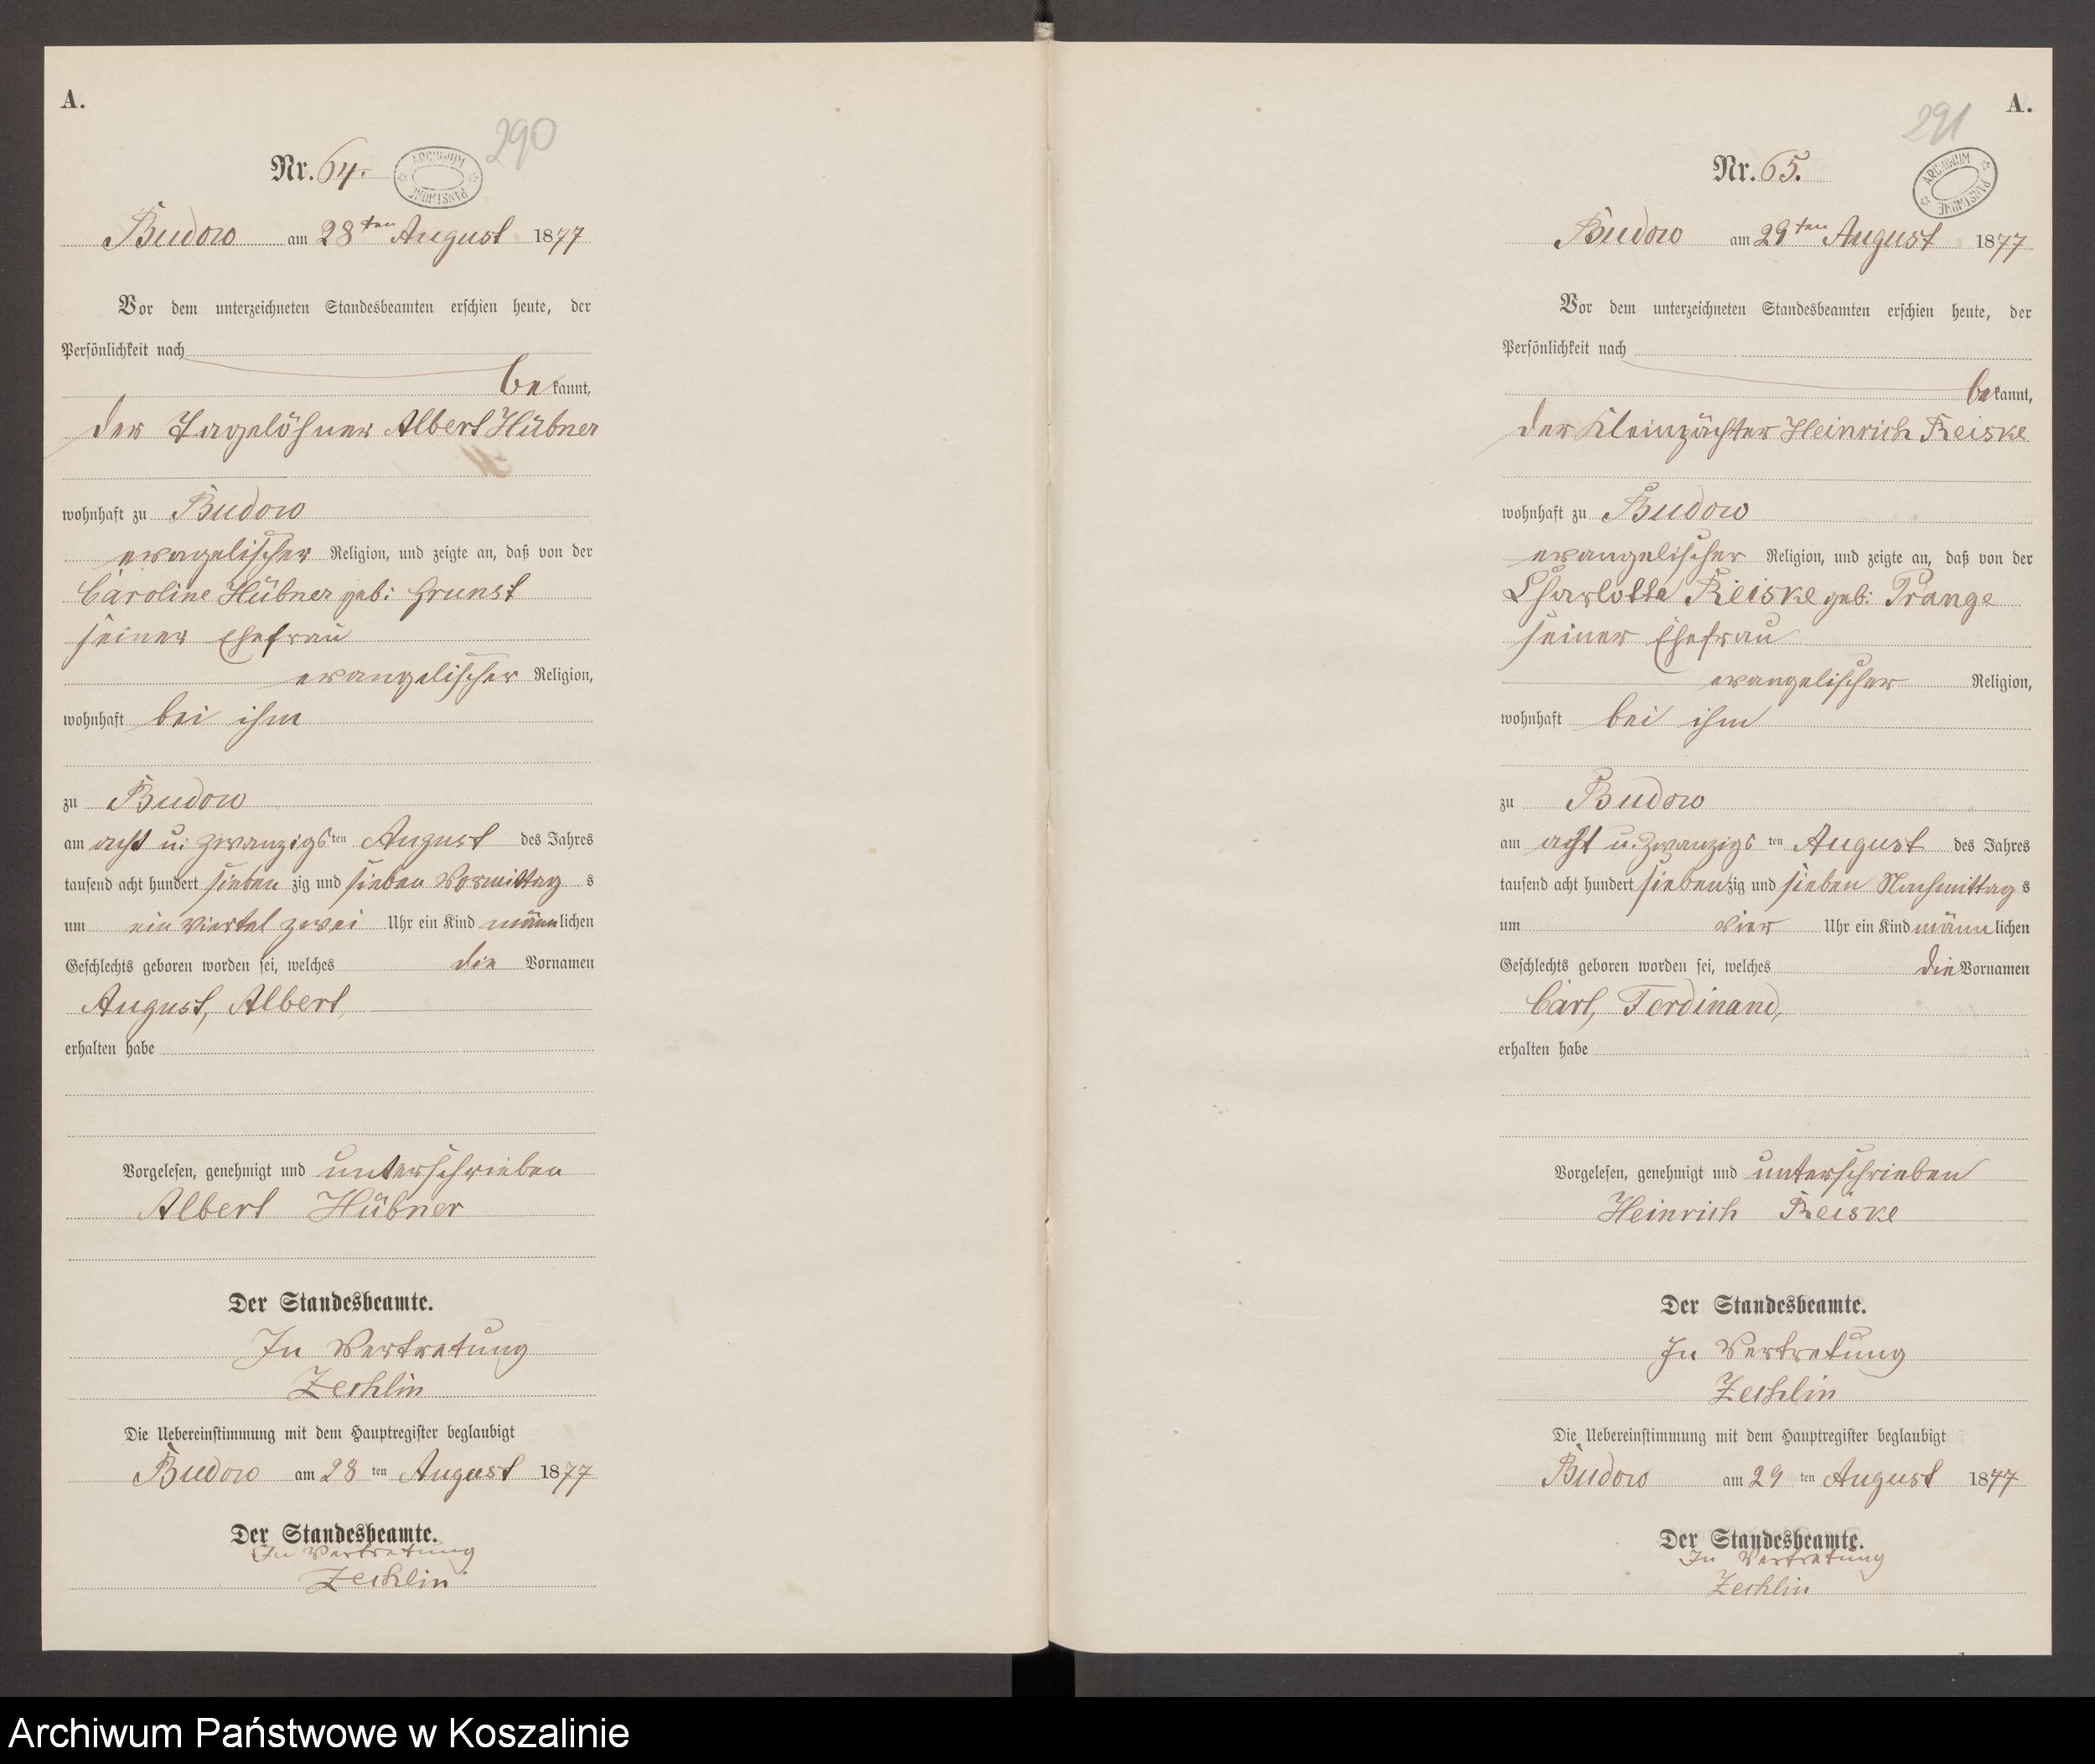 A.
290
Nr. 64.
ARCHIWUM PAŃSTWOWE
Budow am 28ten August 1877
Vor dem unterzeichneten Standesbeamten erschien heute, der
Persönlichkeit nach
bekannt,
der Tagelöhner Albert Hübner
wohnhaft zu Budow
evangelischer Religion, und zeigte an, daß von der
Caroline Hübner geb: Grunst
seiner Ehefrau
evangelischer Religion,
wohnhaft bei ihm
zu Budow
am acht u: zwanzigsten August des Jahres
tausend acht hundert siebenzig und sieben Vormittags
um ein viertel zwei Uhr ein Kind männlichen
Geschlechts geboren worden sei, welches die Vornamen
August, Albert,
erhalten habe
Vorgelesen, genehmigt und unterschrieben
Albert Hübner
Der Standesbeamte.
In Vertretung
Zechlin
Die Uebereinstimmung mit dem Hauptregister beglaubigt
Budow am 28ten August 1877
Der Standesbeamte.
In Vertretung
Zechlin
A.
291
Nr. 65.
ARCHIWUM PAŃSTWOWE
Budow am 29ten August 1877
Vor dem unterzeichneten Standesbeamten erschien heute, der
Persönlichkeit nach
bekannt,
der Kleinpächter Heinrich Reiske
wohnhaft zu Budow
evangelischer Religion, und zeigte an, daß von der
Charlotte Reiske geb: Prange
seiner Ehefrau
evangelischer Religion,
wohnhaft bei ihm
zu Budow
am acht u: zwanzigsten August des Jahres
tausend acht hundert siebenzig und sieben Nachmittags
um vier Uhr ein Kind männlichen
Geschlechts geboren worden sei, welches die Vornamen
Carl, Ferdinand,
erhalten habe
Vorgelesen, genehmigt und unterschrieben
Heinrich Reiske
Der Standesbeamte.
In Vertretung
Zechlin
Die Uebereinstimmung mit dem Hauptregister beglaubigt
Budow am 29ten August 1877
Der Standesbeamte.
In Vertretung
Zechlin
Archiwum Państwowe w Koszalinie